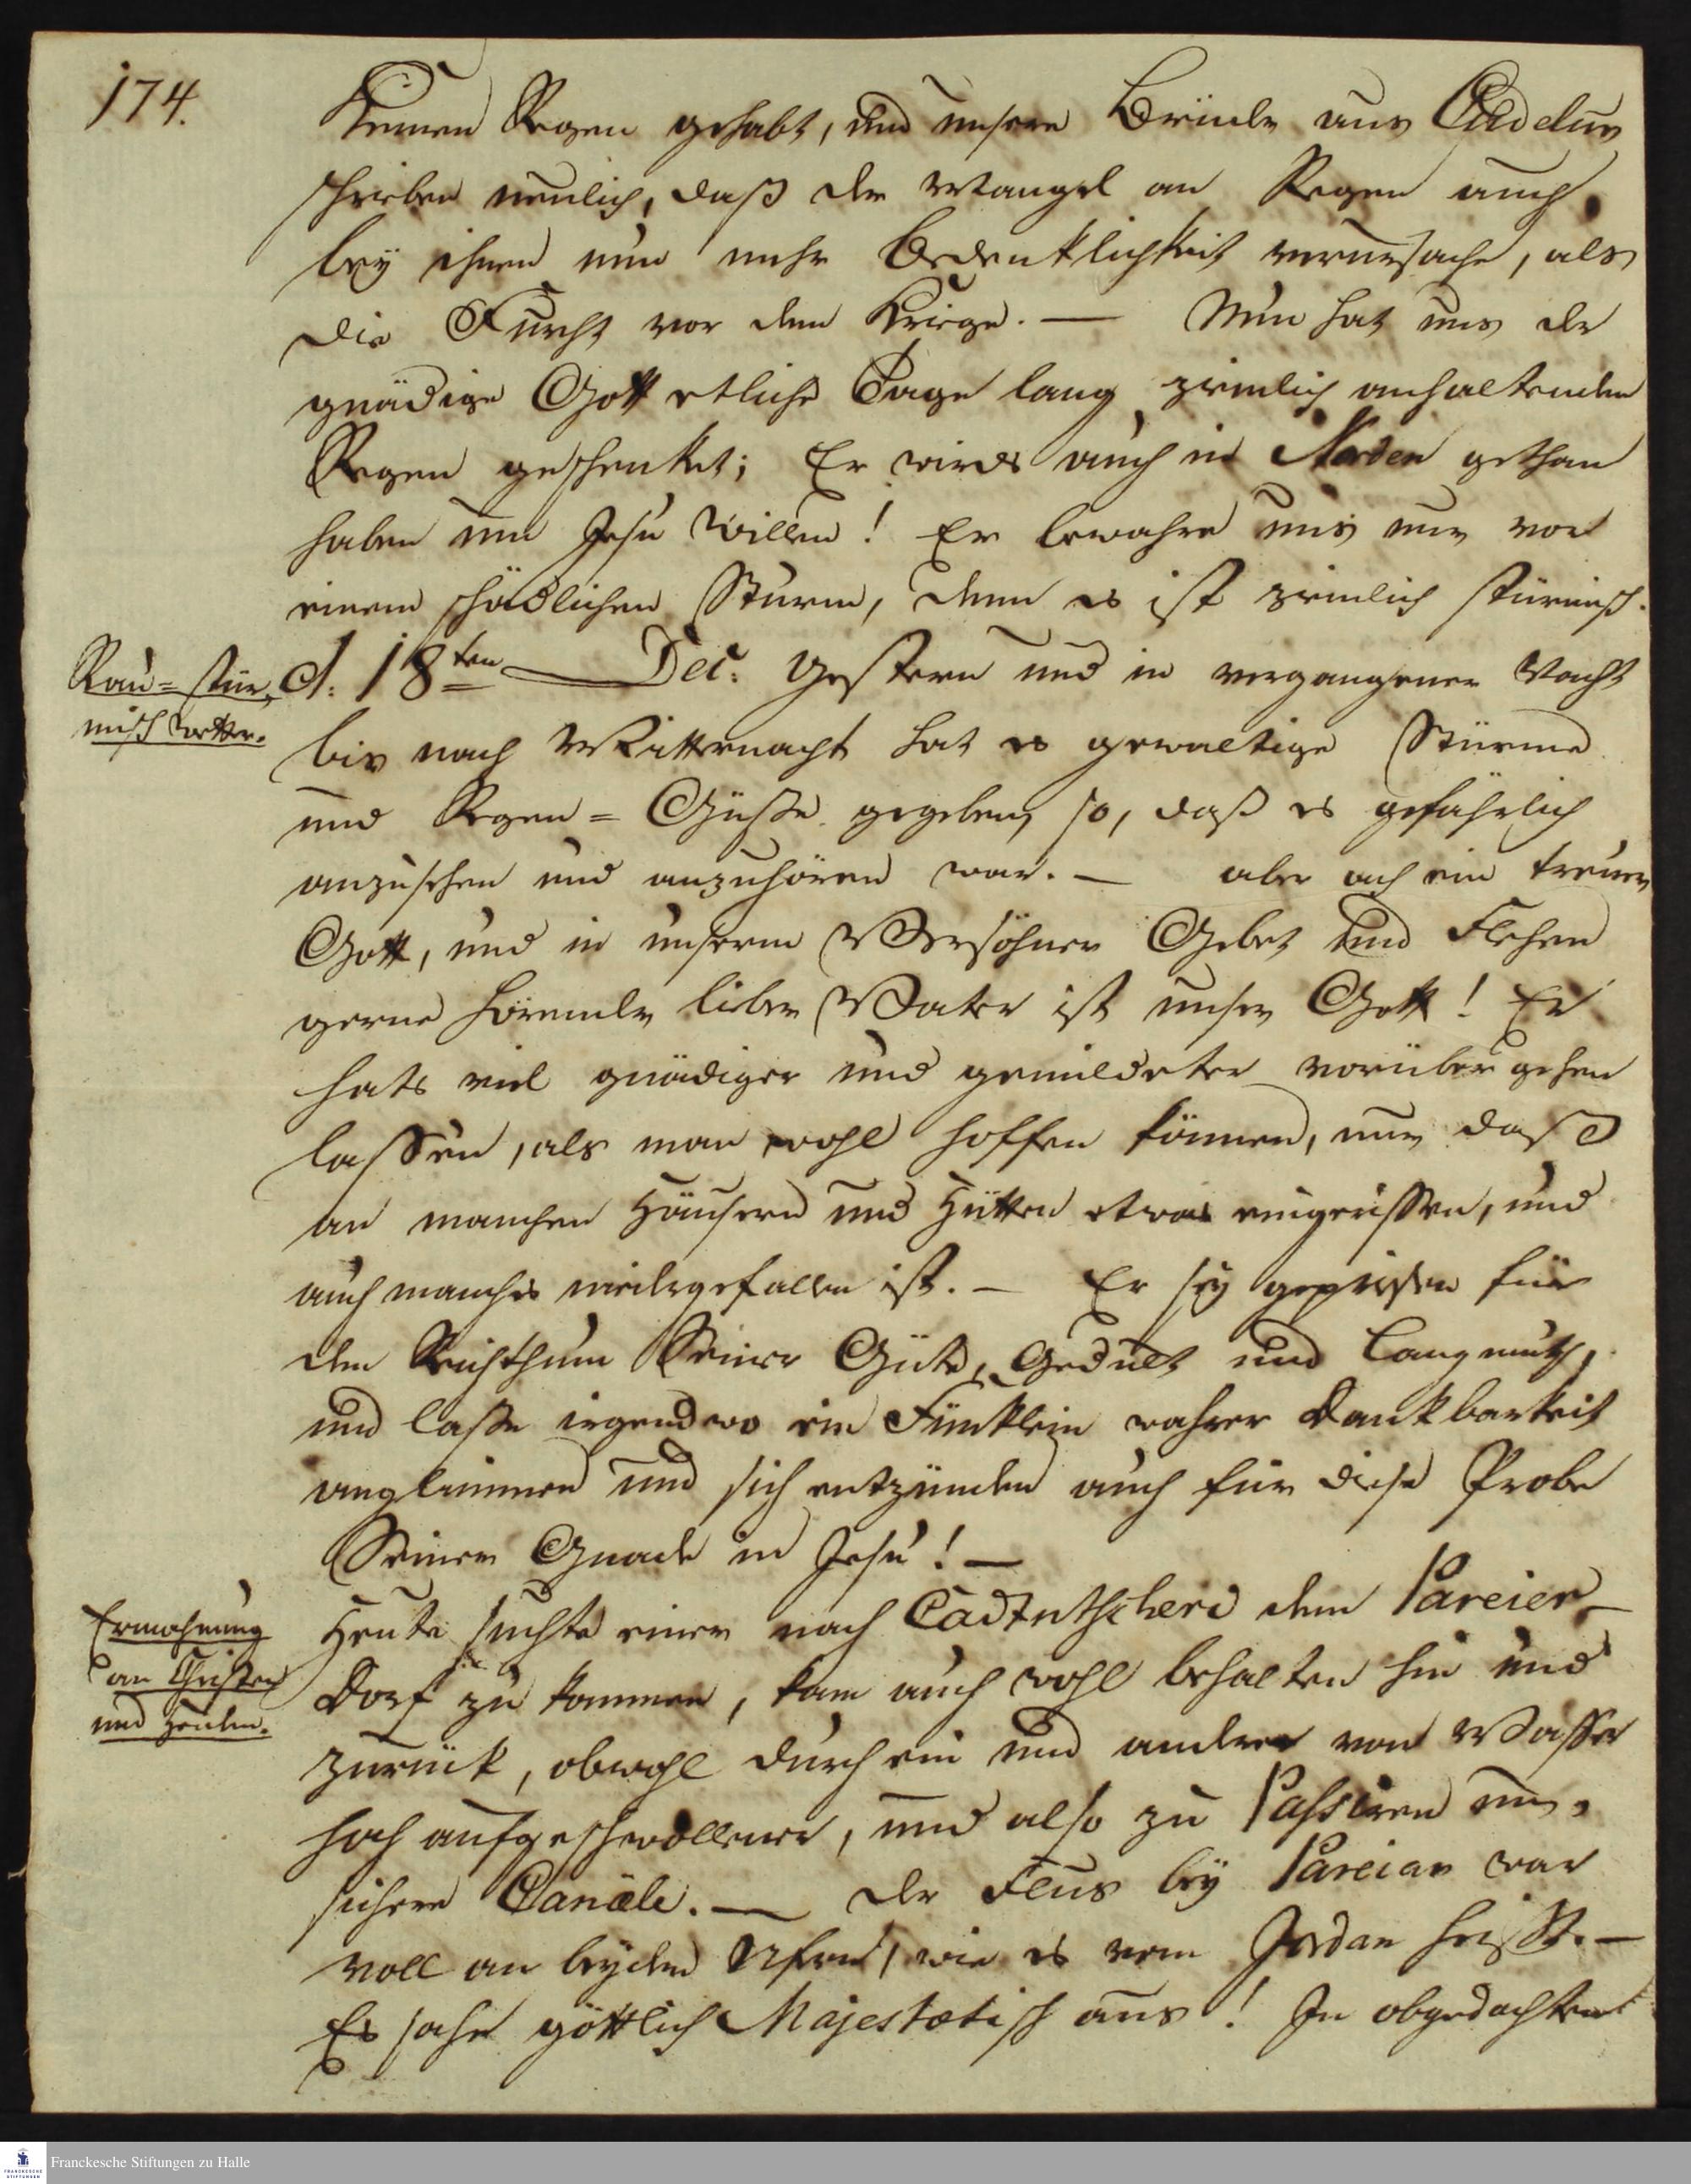 174.
Keinen Regen gehabt, und unsere Brüder aus Cudelur
schrieben neulich, daß der Mangel an Regen auch
bey ihnen nun mehr Bedenklichkeit verursache, als
die Furcht vor dem Kriege. — Nun hat uns der
gnädige Gott etliche Tage lang ziemlich anhaltenden
Regen geschenket; Er wirds auch in Norden gethan
haben um Jesu willen! Er bewahre uns nur vor
einem schädlichen Sturm, denn es ist ziemlich stürmisch.
Rau= stür,
misch Wetter.
d. 18ten Dec. Gestern und in vergangener Nacht
bis nach Mitternacht hat es gewaltige Stürme
und Regen= Güße gegeben, so, daß es gefährlich
anzusehen und anzuhören war. — aber ach ein treuer
Gott, und in unserm Versöhner Gebet und Flehen
gerne hörender lieber Vater ist unser Gott! Er
hats viel gnädiger und gemildeter vorüber gehen
lassen, als man wohl hoffen können, nur daß
an manchen Häusern und Hütten etwas eingerissen, und
auch manches niedergefallen ist. — Er sey gepriesen für
den Reichthum Seiner Güte, Gedult und Langmuth,
und lasse irgendwo ein Fünklein wahrer Dankbarkeit
anglimmen und sich entzünden auch für diese Probe
Seiner Gnade in Jesu! —
Ermahnung
an Christen
und Heiden.
Heute suchte einer nach dem Pareier-
Dorf zu kommen, kam auch wohl behalten hin und
zurück, obwohl durch ein und andere von Wasser
hoch aufgeschwollener, und also zu Passiren un,
sichere Canäle. — Der Fluß bey Pareiar war
voll an beyden Ufern, wie es vom Jordan heißt. —
Es sahe göttlich Majestætisch aus! In obgedachten
Franckesche Stiftungen zu Halle
FRANCKESCHE
STIFTUNGEN